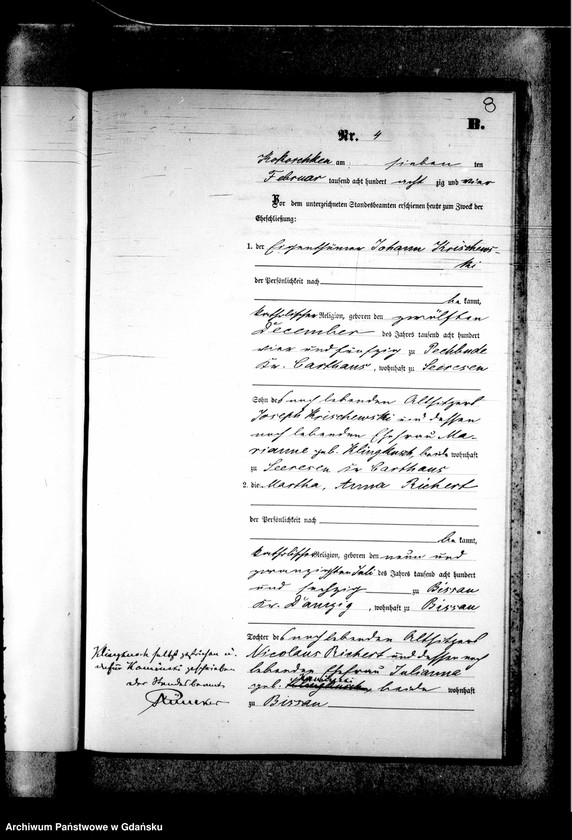 8
B.
Nr. 4
Kokoschken am sieben ten
Februar tausend acht hundert acht zig und vier
Vor dem unterzeichneten Standesbeamten erschienen heute zum Zweck der
Eheschließung:
1. der Eigenthümer Johann Krischews-
ki
der Persönlichkeit nach
be kannt,
katholischer Religion, geboren den zwölften
December des Jahres tausend acht hundert
vier und fünfzig zu Pechbude
Kr. Carthaus, wohnhaft zu Seeresen
Sohn des noch lebenden Altsitzers
Joseph Krischewski und dessen
noch lebenden Ehefrau Ma-
rianne geb. Klingkusch, beide wohnhaft
zu Seeresen Kr Carthaus
2. die Martha, Anna Richert
der Persönlichkeit nach
be kannt,
katholischer Religion, geboren den neun und
zwanzigsten Juli des Jahres tausend acht hundert
und sechzig zu Bissau
Kr. Danzig, wohnhaft zu Bissau
Tochter des noch lebenden Altsitzers
Nicolaus Richert und dessen noch
lebenden Ehefrau Julianna
geb. Klingkusch, beide wohnhaft
zu Bissau
Klingkusch selbst gestrichen u.
dafür Kaminski geschrieben
der Standesbeamte
Archiwum Państwowe w Gdańsku